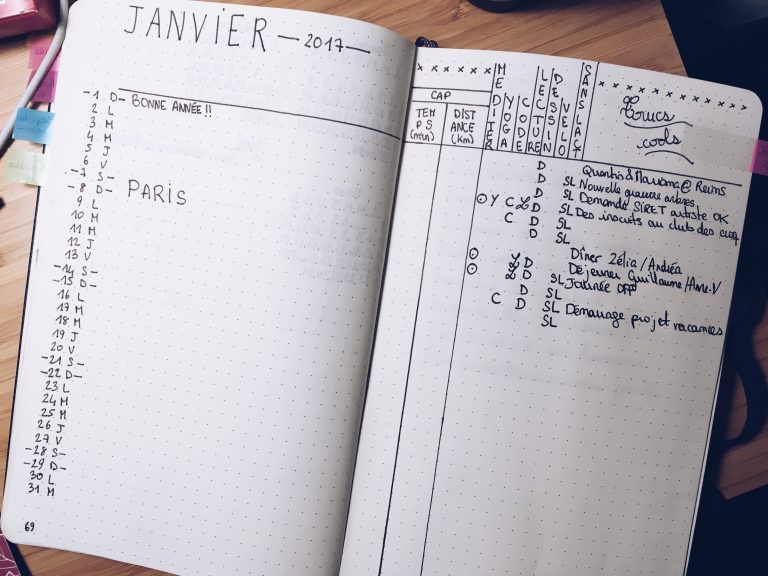 JANVIER — 2017 —
-1 D- BONNE ANNÉE!!
2 L
3 M
4 M
5 J
6 V
-7 S-
-8 D- PARIS
9 L
10 M
11 M
12 J
13 V
-14 S-
-15 D-
16 L
17 M
18 M
19 J
20 V
-21 S-
-22 D-
23 L
24 M
25 M
26 J
27 V
-28 S-
-29 D-
30 L
31 M
69
CAP
TEMPS (min)
DISTANCE (km)
MEDITER
YOGA
CODE
LECTURE
DESSIN
VELO
SANS LACT
Trucs
cools
D Quentin & Marianne @ Reims
D SL Nouvelle gravure arbres
D SL Demande SIRET artiste OK
Y C L D SL Des inscrits au club des cinq
C D SL
D
L D Dîner Zélia/Andréa
L D Déjeuner Guillaume/Anne-V
D SL Journée OFF
C D SL
SL Démarrage projet vacances
SL